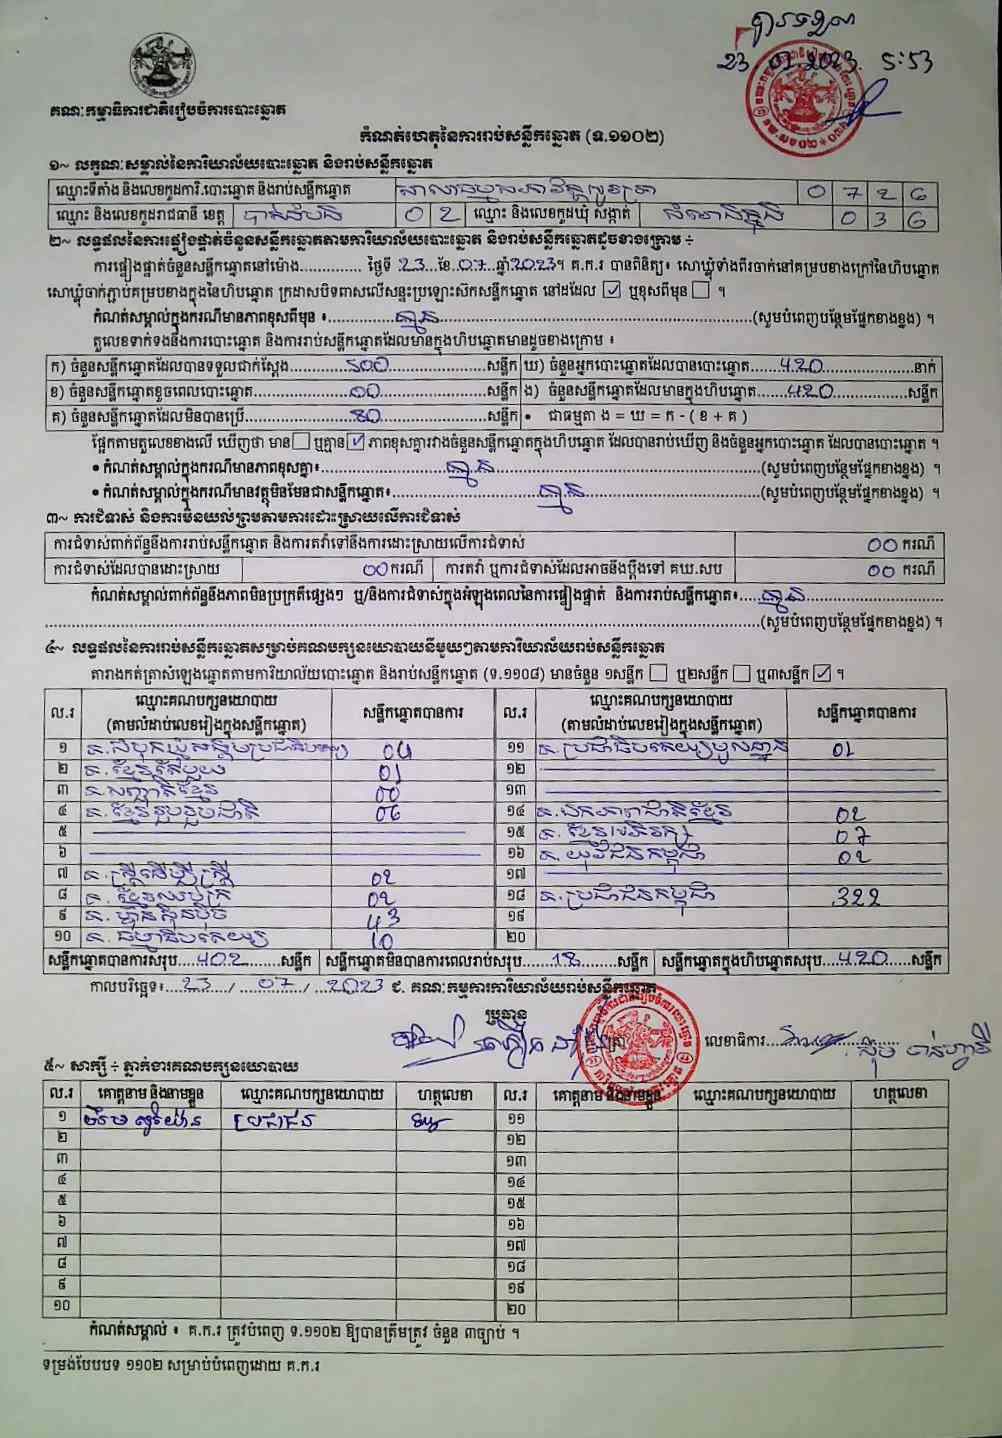 23.07.2023. 5:53
គណៈកម្មាធិការជាតិរៀបចំការបោះឆ្នោត
កំណត់ហេតុនៃការរាប់សន្លឹកឆ្នោត (ទ.១១០២)
១~ លក្ខណៈសម្គាល់នៃការិយាល័យបោះឆ្នោត និងរាប់សន្លឹកឆ្នោត
ឈ្មោះទីតាំង និងលេខកូដការិ.បោះឆ្នោត និងរាប់សន្លឹកឆ្នោត 0 7 2 6
ឈ្មោះ និងលេខកូដរាជធានី ខេត្ត បាត់ដំបង 0 2 ឈ្មោះ និងលេខកូដឃុំ សង្កាត់ 0 3 6
២~ លទ្ធផលនៃការផ្ទៀងផ្ទាត់ចំនួនសន្លឹកឆ្នោតតាមការិយាល័យបោះឆ្នោត និងរាប់សន្លឹកឆ្នោតដូចខាងក្រោម ÷
ការផ្ទៀងផ្ទាត់ចំនួនសន្លឹកឆ្នោតនៅម៉ោង.............. ថ្ងៃទី 23 ...ខែ.07.. ឆ្នាំ2023។ គ.ក.រ បានពិនិត្យ៖ សោឃ្លុំទាំងពីរចាក់នៅគម្របខាងក្រៅនៃហិបឆ្នោត
សោឃ្លុំចាក់ភ្ជាប់គម្របខាងក្នុងនៃហិបឆ្នោត ក្រដាសបិទពាសលើសន្ទះប្រឡោះសិកសន្លឹកឆ្នោត នៅដដែល ☑ ឬខុសពីមុន ☐ ។
កំណត់សម្គាល់ក្នុងករណីមានភាពខុសពីមុន ៖ គ្មាន (សូមបំពេញបន្ថែមផ្នែកខាងខ្នង) ។
តួលេខទាក់ទងនឹងការបោះឆ្នោត និងការរាប់សន្លឹកឆ្នោតដែលមានក្នុងហិបឆ្នោតមានដូចខាងក្រោម ៖
ក) ចំនួនសន្លឹកឆ្នោតដែលបានទទួលជាក់ស្ដែង 500 សន្លឹក ឃ) ចំនួនអ្នកបោះឆ្នោតដែលបានបោះឆ្នោត 420 នាក់
ខ) ចំនួនសន្លឹកឆ្នោតខូចពេលបោះឆ្នោត 00 សន្លឹក ង) ចំនួនសន្លឹកឆ្នោតដែលមានក្នុងហិបឆ្នោត 420 សន្លឹក
គ) ចំនួនសន្លឹកឆ្នោតដែលមិនបានប្រើ 80 សន្លឹក • ជាធម្មតា ង = ឃ = ក - ( ខ + គ )
ផ្អែកតាមតួលេខខាងលើ ឃើញថា មាន ☐ ឬគ្មាន ☑ ភាពខុសគ្នារវាងចំនួនសន្លឹកឆ្នោតក្នុងហិបឆ្នោត ដែលបានរាប់ឃើញ និងចំនួនអ្នកបោះឆ្នោត ដែលបានបោះឆ្នោត ។
• កំណត់សម្គាល់ក្នុងករណីមានភាពខុសគ្នា៖ គ្មាន (សូមបំពេញបន្ថែមផ្នែកខាងខ្នង) ។
• កំណត់សម្គាល់ក្នុងករណីមានវត្ថុមិនមែនជាសន្លឹកឆ្នោត៖ គ្មាន (សូមបំពេញបន្ថែមផ្នែកខាងខ្នង) ។
៣~ ការជំទាស់ និងការមិនយល់ព្រមតាមការដោះស្រាយលើការជំទាស់
ការជំទាស់ពាក់ព័ន្ធនឹងការរាប់សន្លឹកឆ្នោត និងការតវ៉ាទៅនឹងការដោះស្រាយលើការជំទាស់ 00 ករណី
ការជំទាស់ដែលបានដោះស្រាយ 00 ករណី ការតវ៉ា ឬការជំទាស់ដែលអាចនឹងប្ដឹងទៅ គឃ.សប 00 ករណី
កំណត់សម្គាល់ពាក់ព័ន្ធនឹងភាពមិនប្រក្រតីផ្សេងៗ ឬ/និងការជំទាស់ក្នុងអំឡុងពេលនៃការផ្ទៀងផ្ទាត់ និងការរាប់សន្លឹកឆ្នោត៖ គ្មាន
(សូមបំពេញបន្ថែមផ្នែកខាងខ្នង) ។
៤~ លទ្ធផលនៃការរាប់សន្លឹកឆ្នោតសម្រាប់គណបក្សនយោបាយនីមួយៗតាមការិយាល័យរាប់សន្លឹកឆ្នោត
តារាងកត់ត្រាសំឡេងឆ្នោតតាមការិយាល័យបោះឆ្នោត និងរាប់សន្លឹកឆ្នោត (ទ.១១០៨) មានចំនួន ១សន្លឹក ☐ ឬ២សន្លឹក ☐ ឬ៣សន្លឹក ☑ ។
ល.រ ឈ្មោះគណបក្សនយោបាយ (តាមលំដាប់លេខរៀងក្នុងសន្លឹកឆ្នោត) សន្លឹកឆ្នោតបានការ ល.រ ឈ្មោះគណបក្សនយោបាយ (តាមលំដាប់លេខរៀងក្នុងសន្លឹកឆ្នោត) សន្លឹកឆ្នោតបានការ
១ 04 ១១ 01
២ គ.ខ្មែរតែមួយ 01 ១២
៣ គ.សញ្ជាតិខ្មែរ 00 ១៣
៤ គ.ខ្មែររួបរួមជាតិ 06 ១៤ គ.ឯកភាពជាតិខ្មែរ 02
៥ ១៥ គ.ខ្មែរអភិរក្ស 07
៦ ១៦ គ.យុវជនកម្ពុជា 02
៧ គ.ស្ត្រីដើម្បីស្ត្រី 02 ១៧
៨ គ.ខ្មែរឈប់ក្រ 02 ១៨ គ.ប្រជាជនកម្ពុជា 322
៩ គ.ហ្វ៊ុនស៊ិនប៉ិច 43 ១៩
១០ គ.ធម្មាធិបតេយ្យ 10 ២០
សន្លឹកឆ្នោតបានការសរុប 402 សន្លឹក សន្លឹកឆ្នោតមិនបានការពេលរាប់សរុប 18 សន្លឹក សន្លឹកឆ្នោតក្នុងហិបឆ្នោតសរុប 420 សន្លឹក
កាលបរិច្ឆេទ៖ 23 / 07 / 2023 ជ. គណៈកម្មការការិយាល័យរាប់សន្លឹកឆ្នោត
ប្រធាន
លេខាធិការ
៥~ សាក្សី ÷ ភ្នាក់ងារគណបក្សនយោបាយ
ល.រ គោត្តនាម និងនាមខ្លួន ឈ្មោះគណបក្សនយោបាយ ហត្ថលេខា ល.រ គោត្តនាម និងនាមខ្លួន ឈ្មោះគណបក្សនយោបាយ ហត្ថលេខា
១ ប្រជាជន ១១
២ ១២
៣ ១៣
៤ ១៤
៥ ១៥
៦ ១៦
៧ ១៧
៨ ១៨
៩ ១៩
១០ ២០
កំណត់សម្គាល់ ៖ គ.ក.រ ត្រូវបំពេញ ទ.១១០២ ឱ្យបានត្រឹមត្រូវ ចំនួន ៣ច្បាប់ ។
ទម្រង់បែបបទ ១១០២ សម្រាប់បំពេញដោយ គ.ក.រ